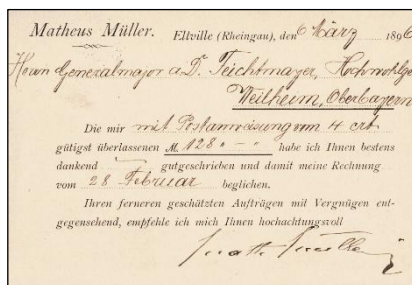 Matheus Müller. Eltville (Rheingau), den 6 März 1896
Herrn Generalmajor a. D. Teichtmayer, Hochwohlge
Weilheim, Oberbayern
Die mir mit Postanweisung vom 4 crt.
gütigst überlassenen M. 128 " - " habe ich Ihnen bestens
dankend gutgeschrieben und damit meine Rechnung
vom 28 Februar beglichen.
Ihren ferneren geschätzten Aufträgen mit Vergnügen ent-
gegensehend, empfehle ich mich Ihnen hochachtungsvoll
Math Müller